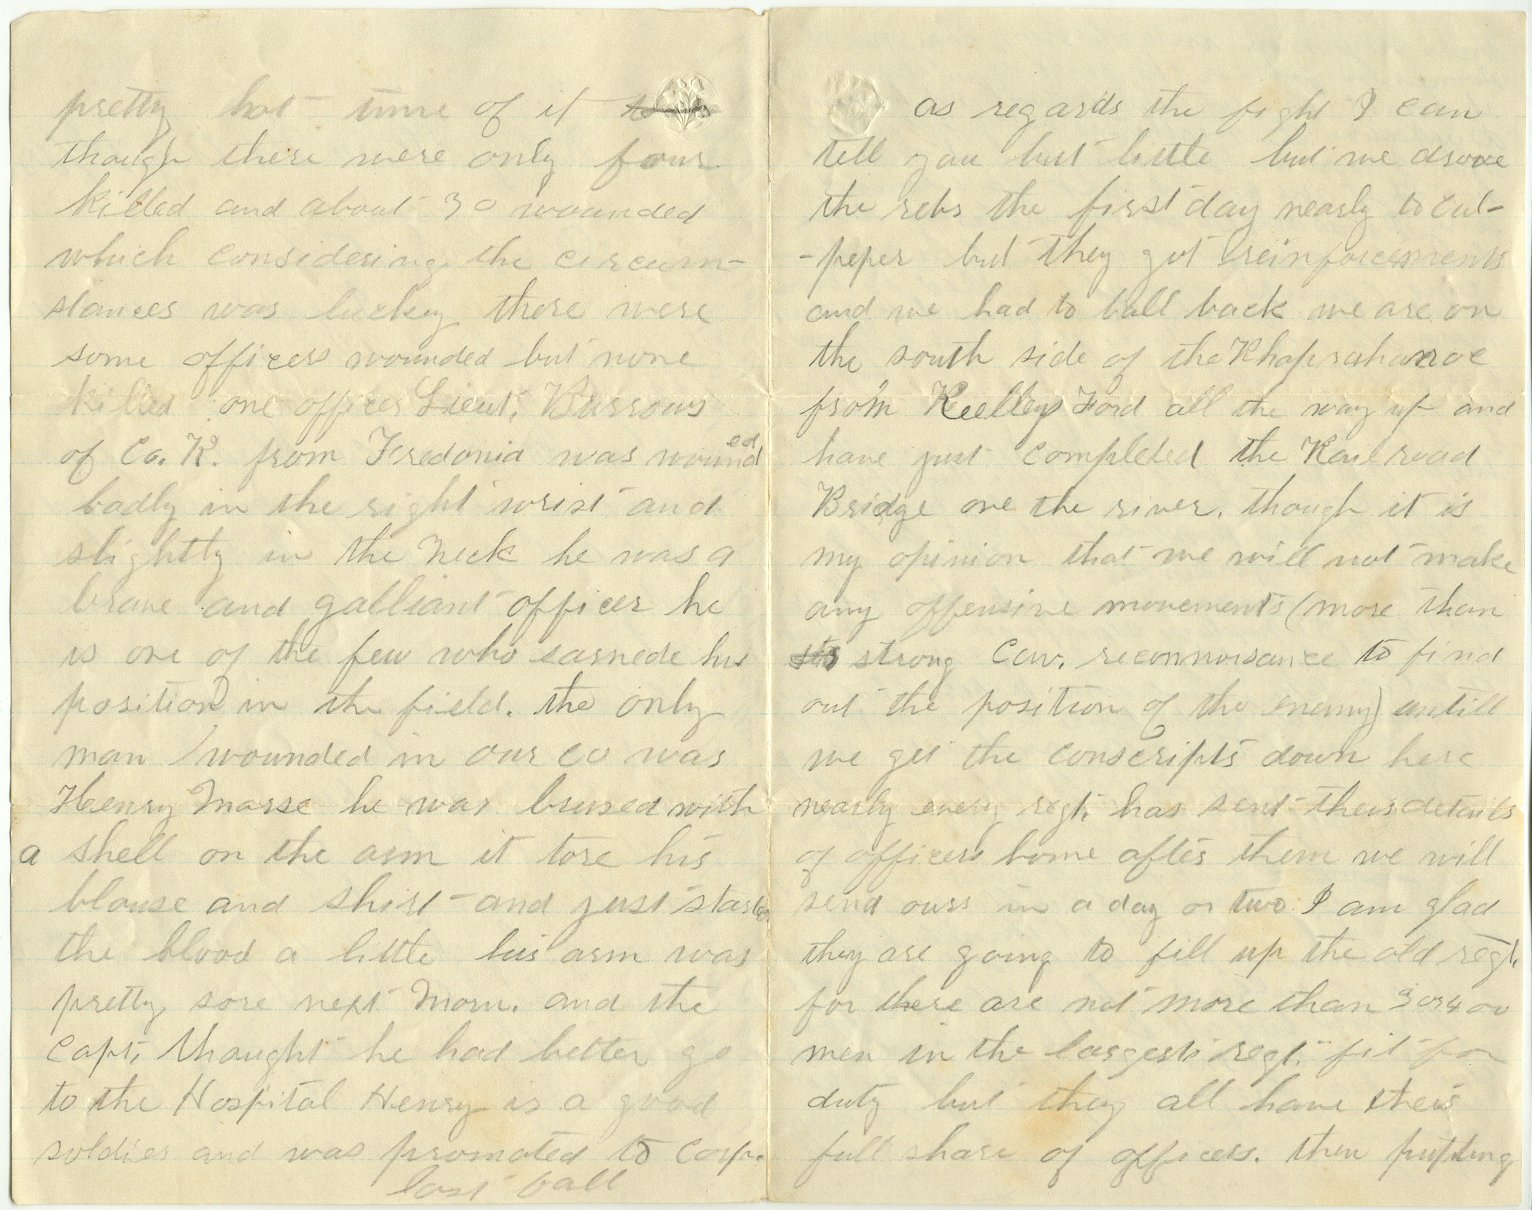 pretty hot time of it
though there were only four
killed and about 30 wounded
which considering the circum-
stances was luckey there were
some officers wounded but none
killed one officer Lieut, Burrows
of Co. K. from Fredonia was wounded
badly in the right wrist and
slightly in the neck he was a
brave and galliant officer he
is one of the few who earnede his
position in the field. the only
man wounded in our co was
Henry Morse he was brused with
a shell on the arm it tore his
blouse and shirt and just started
the blood a little his arm was
pretty sore next Morn. and the
Capt, thought he had better go
to the Hospital Henry is a good
soldier and was promoted to Corp.
last fall
as regards the fight I can
tell you but little but we drove
the rebs the first day nearly to Cul-
-peper but they got reinforcements
and we had to fall back we are on
the south side of the Rhaprahanoc
from Keelleys Ford all the way up and
have just completed the Railroad
Bridge ove the river. though it is
my opinion that we will not make
any offensive movements (more than
strong Cav. reconnoisance to find
out the position of the enemy) untill
we get the conscripts down here
nearly every regt, has sent their details
of officers home after them we will
send ours in a day or two I am glad
they are going to fill up the old regt.
for there are not more than 3 or 400
men in the largest regt. fit for
duty but they all have their
full share of officers. then putting